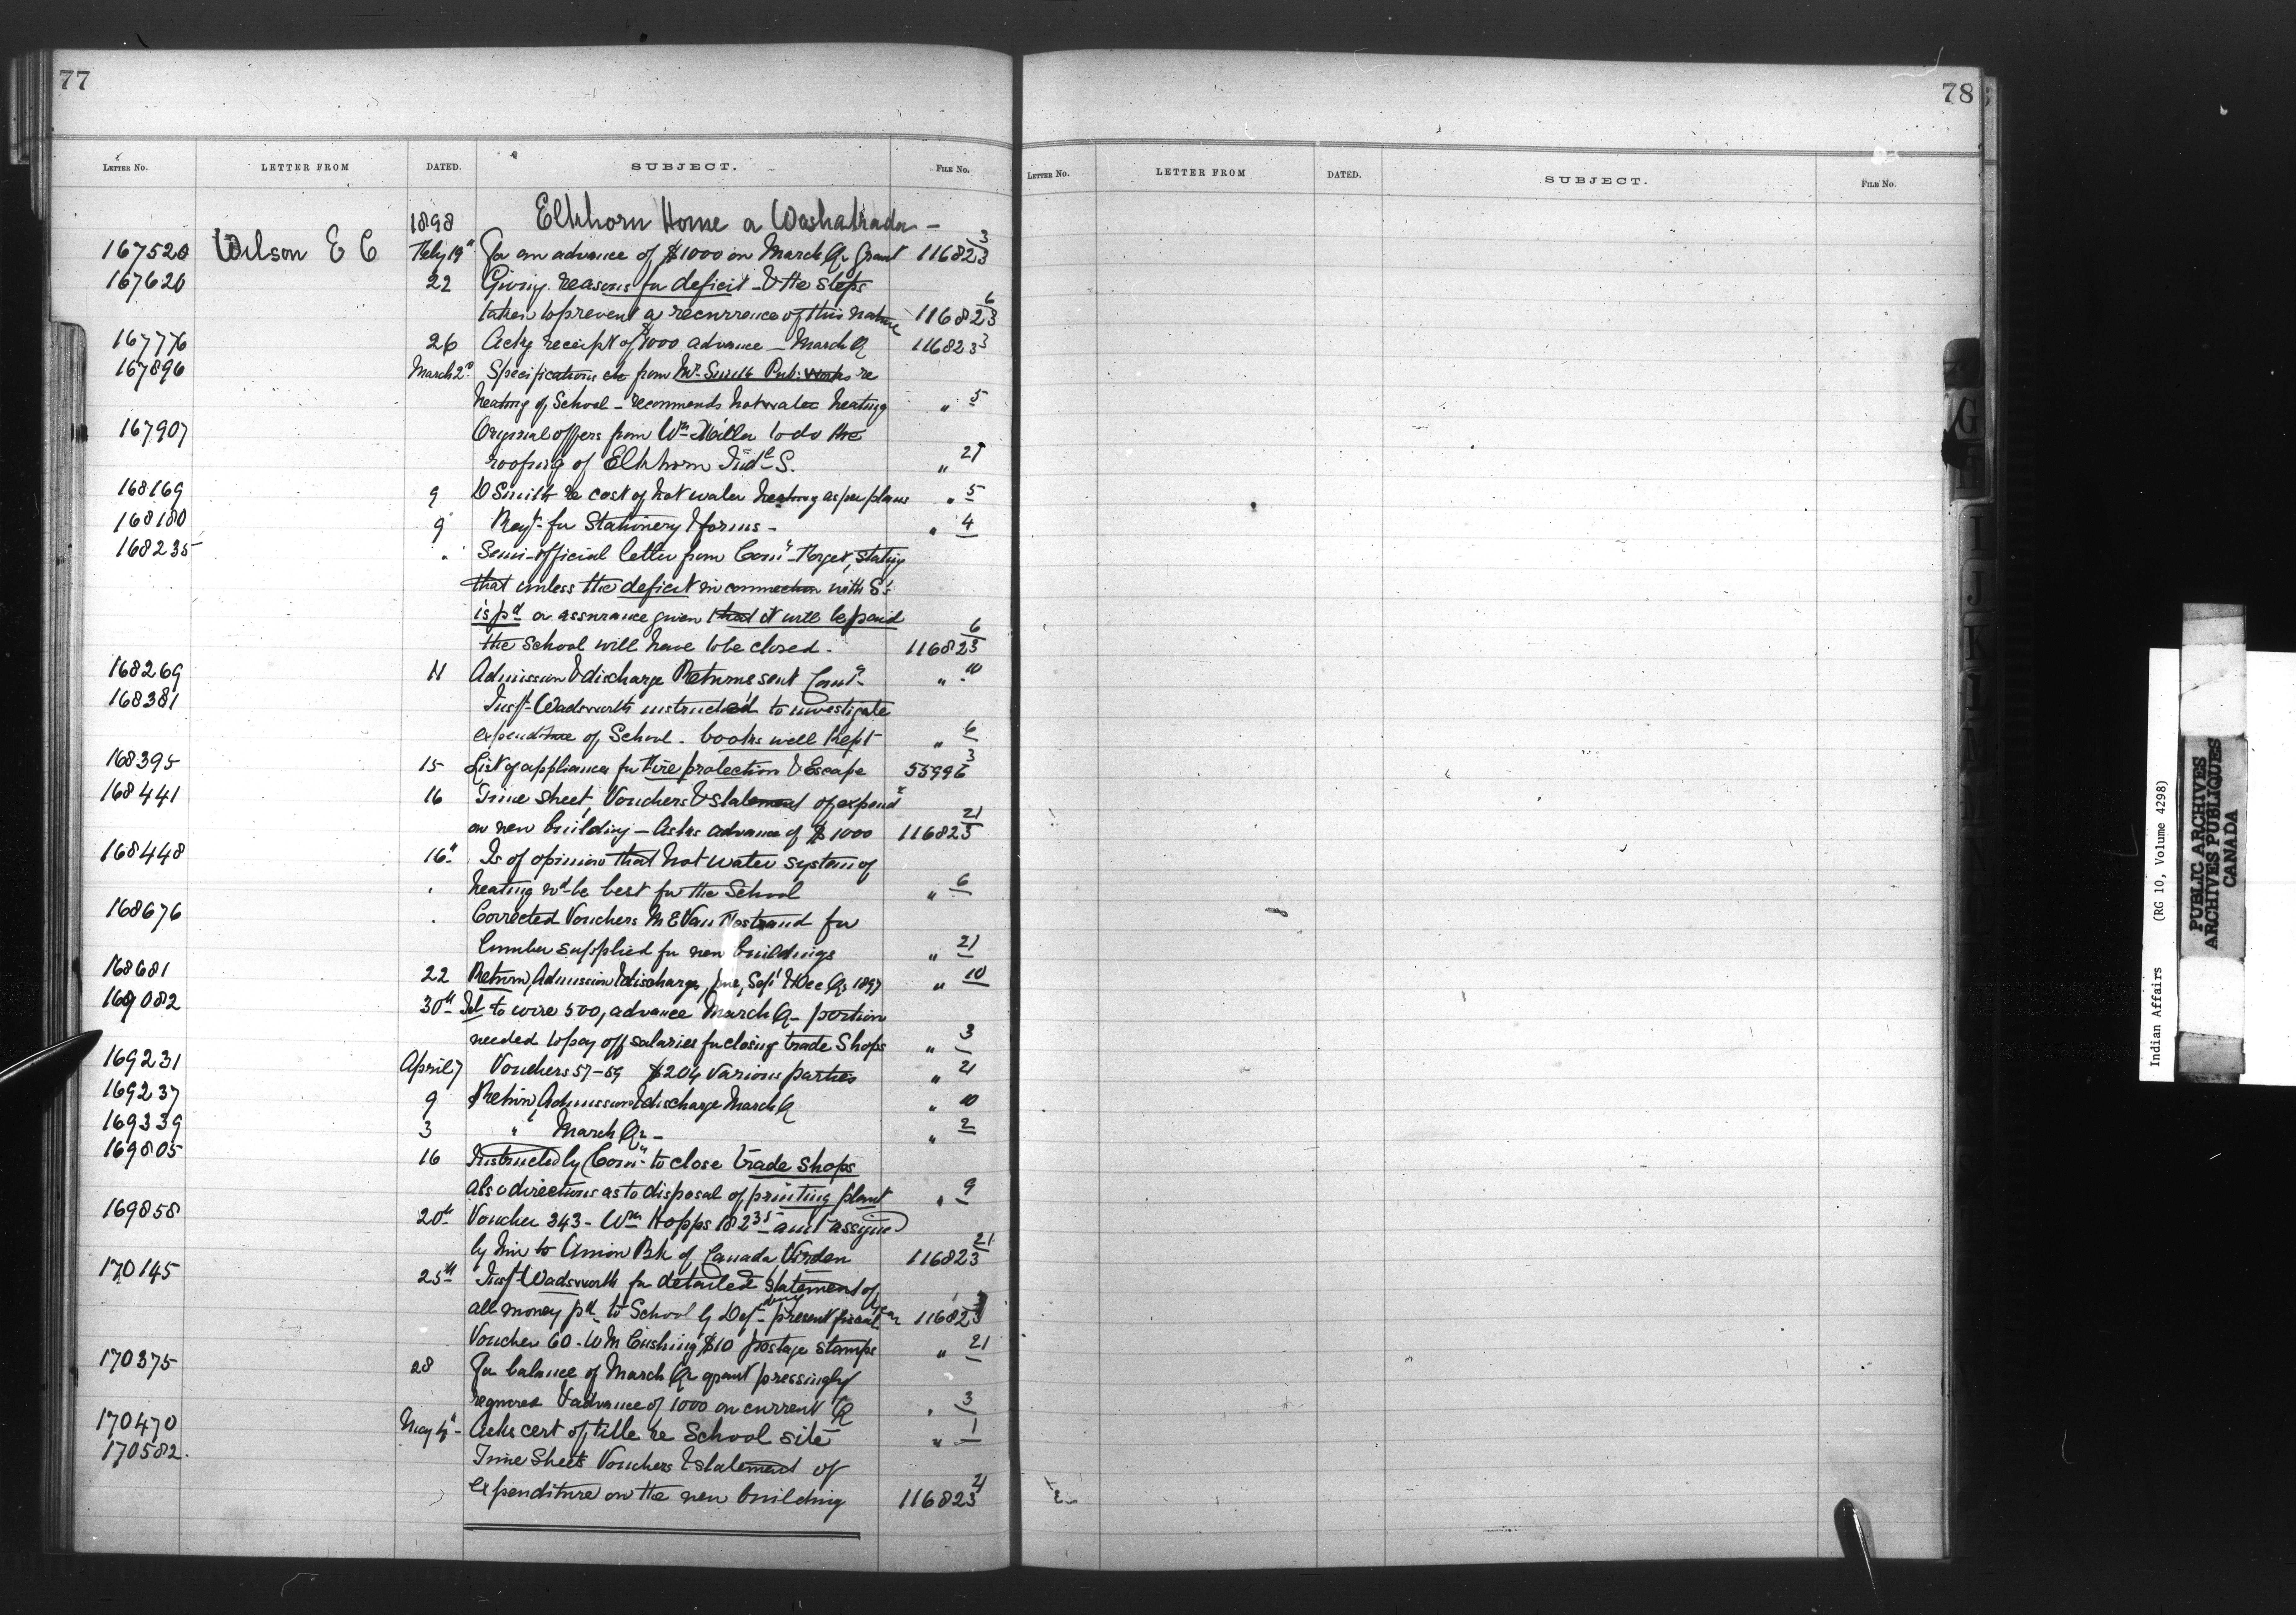 77
LETTER No. LETTER FROM DATED. SUBJECT. FILE No.
1898 Elkhorn Home a Washakada -
167520 Wilson E C Feby 19th For an advance of $1000 on March Qr Grant 116823 3
167620 22 Giving reasons for deficit - & the steps
taken to prevent a recurrence of this nature 116823 6
167776 26 Ackg receipt of $1000 advance - March Q 116823 3
167896 March 2nd Specifications etc from Mr Smith Pub: Works re
heating of School - recommends hot water heating " 5
167907 Original offers from Wm Miller to do the
roofing of Elkhorn Indl S. " 21
168169 9 D Smith re cost of hot water heating as per plans " 5
168180 9 Reqn for Stationery & forms - " 4
168235 " Semi-official letter from Comr Forget, stating
that unless the deficit in connection with S:
is pd or assurance given that it will be paid
the School will have to be closed. 116823 6
168269 11 Admission & discharge Returns sent Comr " 10
168381 Inspr Wadsworth instructed to investigate
expenditure of School - books well kept " 6
168395 15 List of appliances for Fire protection & Escape 55996 3
168441 16 Time sheet, Vouchers & statement of expendre
on new building - Asks advance of $1000 116823 21
168448 16th Is of opinion that hot water system of
heating wd be best for the School " 6
168676 " Corrected Vouchers M E Van Nostrand for
lumber supplied for new buildings " 21
168681 22 Return, Admission & discharge, June, Sept & Dec Qrs 1897 " 10
169082 30th Tel to wire 500, advance March Q - portion
needed to pay off salaries for closing trade Shops " 3
169231 April 7 Vouchers 57-59 $204 various parties " 21
169237 9 Return, Admission & discharge March Q " 10
169339 3 " March Qr - " 2
169805 16 Instructed by Comr to close trade shops
also directions as to disposal of printing plant " 9
169858 20th Voucher 343 - Wm Hopps 182 35 - amt assigned
by him to Union Bk of Canada, Virden 116823 21
170145 25th Inspr Wadsworth for detailed statement of
all money pd to School by Dept during present fiscal year 116823 3
Voucher 60 - W M Cushing $10 postage stamps " 21
170375 28 For balance of March Qr grant pressingly
required & advance of 1000 on current Q " 3
170470 May 4th Asks cert of title re School site " 1
170582. Time Sheets Vouchers & statement of
expenditure on the new building 116823 21
78
LETTER No. LETTER FROM DATED. SUBJECT. FILE No.
G
I
J
K
Indian Affairs (RG 10, Volume 4298)
PUBLIC ARCHIVES
ARCHIVES PUBLIQUES
CANADA